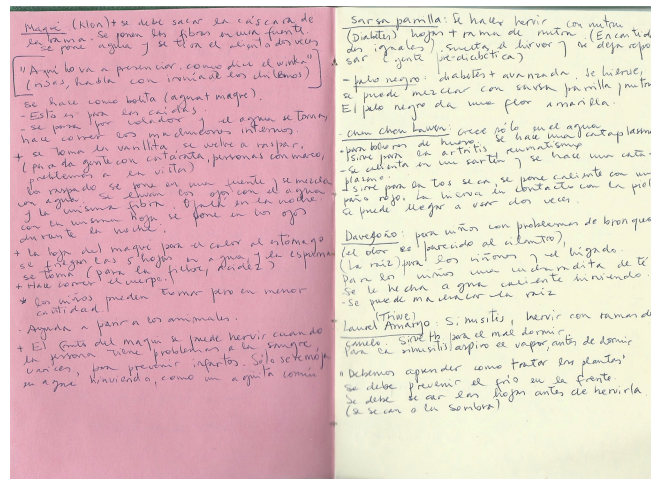 Maqui (Klon) + se debe sacar la cáscara de
la rama. Se ponen las fibras en una fuente
se pone agua y se
"Aquí lo va a presenciar, como dice el winka"
(risas, habla con ironía de los chilenos)
se hace como bolita (agua + maqui).
- Esto es para las caídas.
- se pasa por colador y el agua se toma,
hace correr los machucones internos.
+ se toma la varillita, se vuelve a raspar,
(para da gente con catarata, personas con mareo,
problemas a la vista)
Lo raspado se pone en una fuente, se mezcla
con agua. Se lavan los ojos con el agua
y la misma fibra. O para en la noche
con la misma hoja se pone en los ojos
durante la noche.
+ La hoja del maqui para el calor al estómago
se friegan las 5 hojas en agua, y la espuma
se toma (para la fiebre, acidez)
+ Hace correr el cuerpo.
* los niños pueden tomar pero en menor
cantidad.
- Ayuda a parir a los animales.
+ El fruto del maqui se puede hervir cuando
la persona tiene problemas a la sangre,
varices, para prevenir infartos. Sólo se remoja
en agua hirviendo, como un agüita común
Sarsa parrilla: Se hace hervir con mutru
(Diabetes) hojas + rama de mutru. (En cantidades
iguales), suelta el hervor y se deja reposar
(gente pre-diabética)
- pelo negro: diabetes + avanzada. se hierve,
se puede mezclar con sarsa parrilla y mutru
El pelo negro da una flor amarilla.
- Chun chon Lawen: crece sólo en el agua
- para dolores de hueso. Se hace una cataplasma
sirve para la artritis, reumatismo
- Se calienta en un sartén y se hace una cata-
plasma.
- sirve para la tos seca, se pone caliente con un
paño rojo. La hierva en contacto con la piel
se puede llegar a usar dos veces.
Davegoño: para niños con problemas de bronquios
(el olor es parecido al cilantro),
(La raíz) para los riñones y el hígado.
Para los niños una cucharadita de té
Se le hecha agua caliente hirviendo.
- Se puede machacar la raíz
(Triwe)
Laurel Amargo: Sinusitis, hervir con ramas de
canelo. Sirve tb. para el mal dormir.
Para la sinusitis, aspiro el vapor, antes de dormir
"Debemos aprender como tratar las plantas"
Se debe prevenir el frío en la frente.
Se debe secar las hojas antes de hervirla.
(se secan a la sombra)